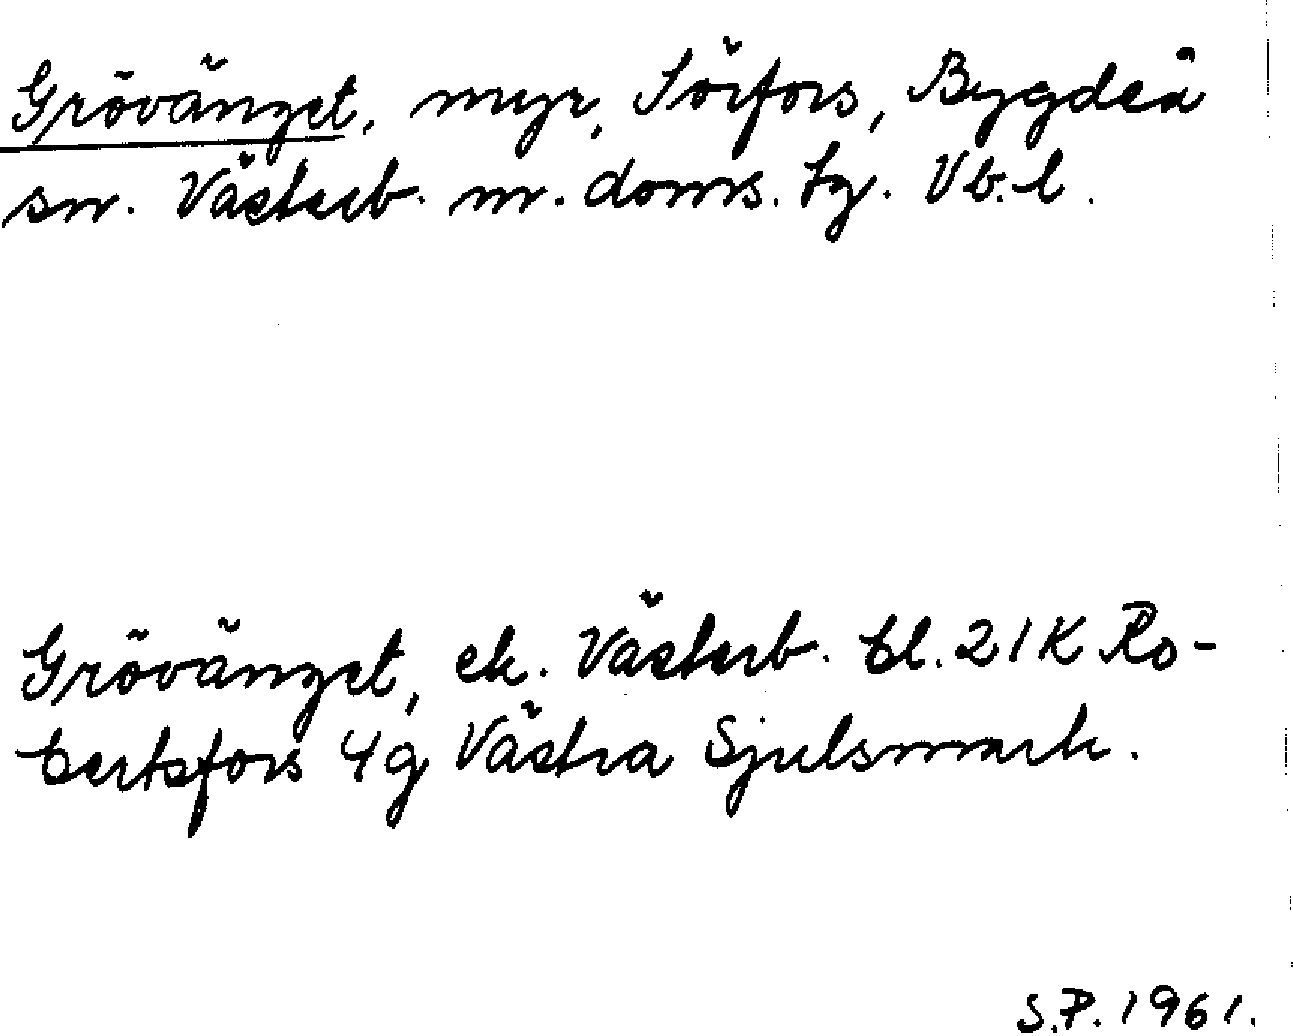 Grövänget, myr, Sörfors, Bygdeå
sn. Västerb. m. doms. tg. Vb. l.
Grövänget, ek. Västerb. bl. 21K Ro-
bertsfors 4g Västra Sjulsmark.
S.P. 1961.